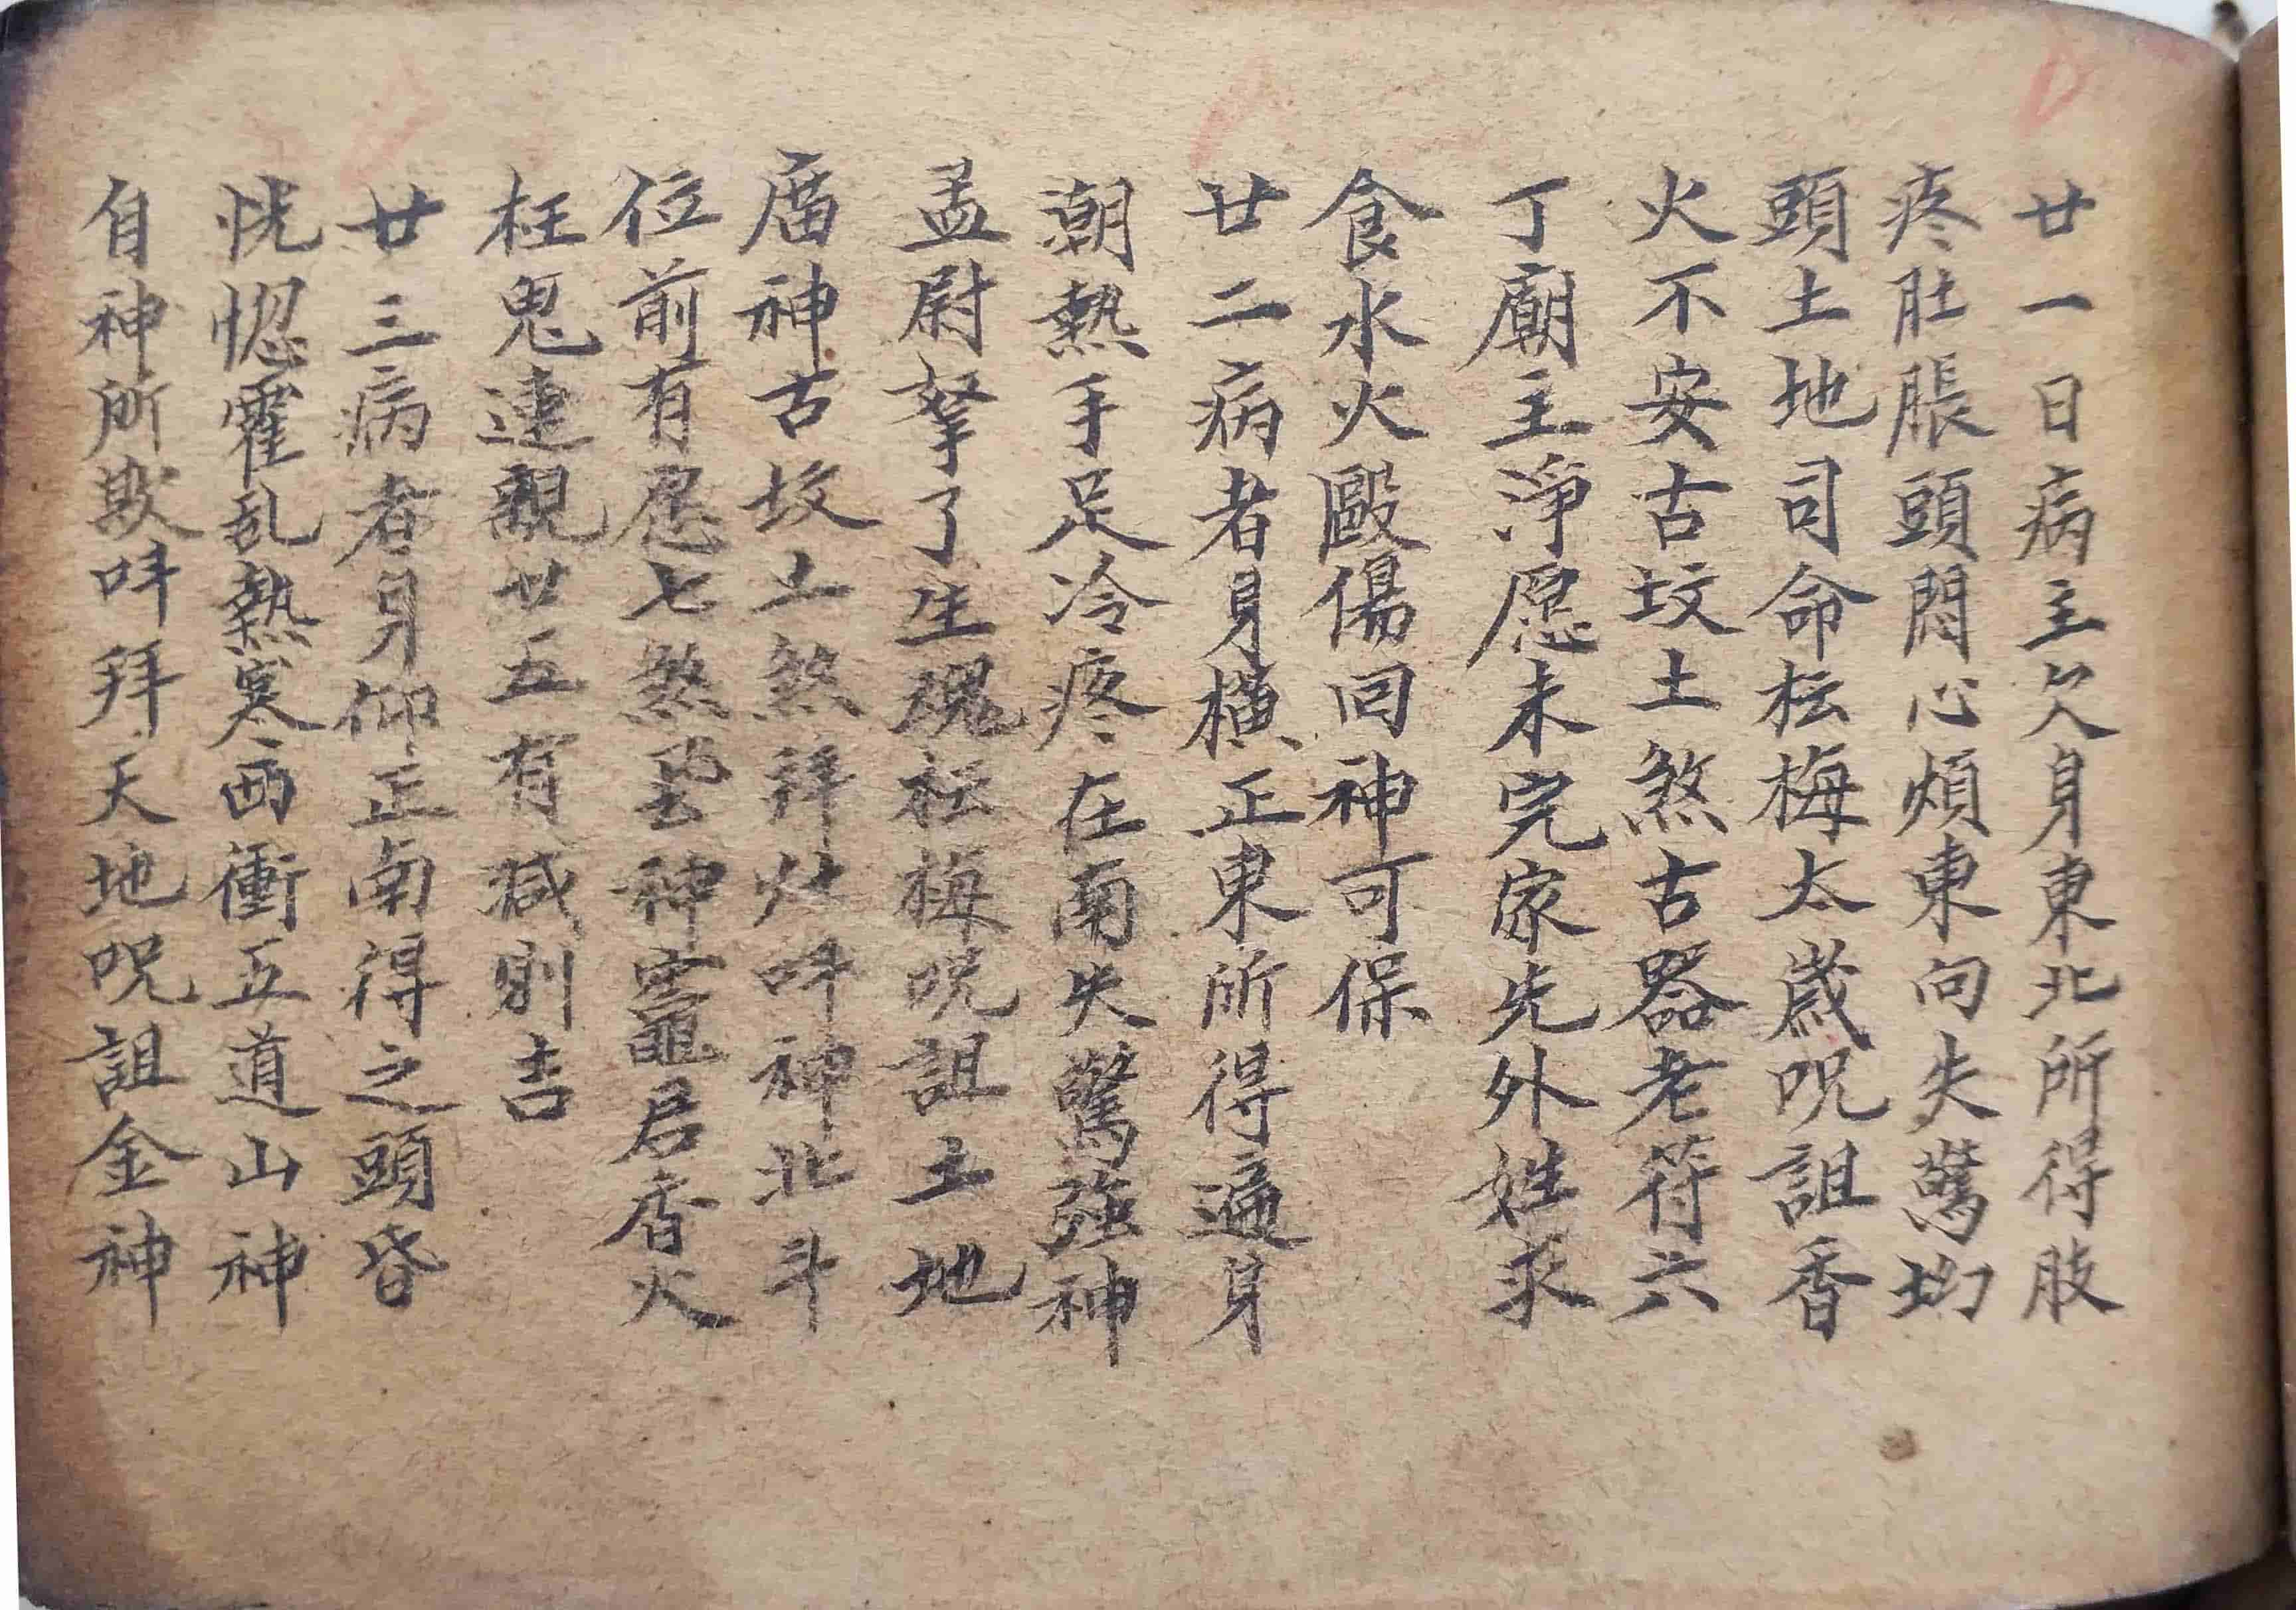 廿一日病主欠身東北所得肢
疼肚脹頭悶心煩東向失驚坳
頭土地司命枟梅太歲呪詛香
火不安古坟土煞古器老符六
丁廟主淨愿未完家先外姓求
食水火毆傷回神可保
廿二病者身橫正東所得遍身
潮熱手足冷疼在南失驚強神
孟尉拏了生魂枟梅呪詛土地
神古坟土煞拜灶呌神北斗
位前有愿七煞神竈君香火
枉鬼連親廿五有减則吉
廿三病者身仰正南得之頭昏
恍惚霍乱熱寒西衝五道山神
自神所欺呌拜天地呪詛金神